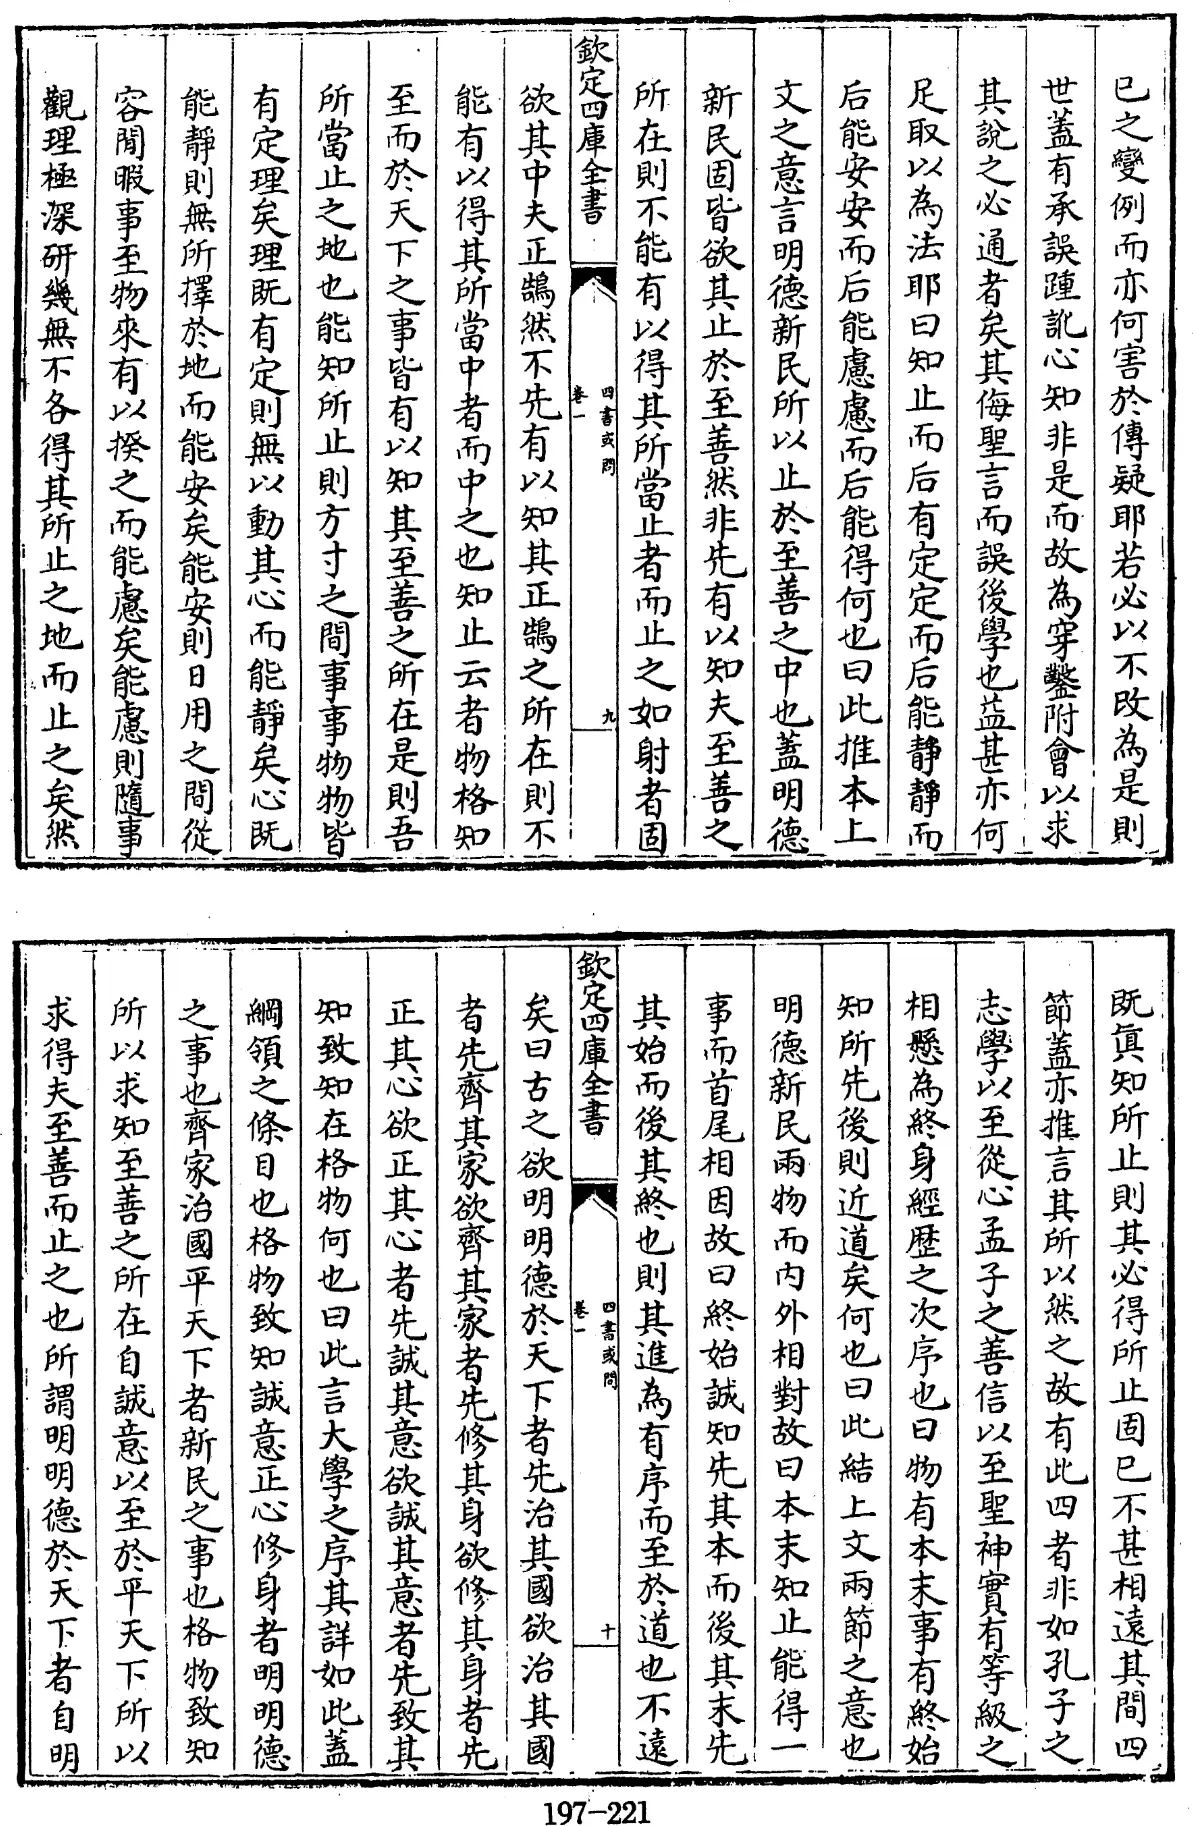 已之變例而亦何害於傳疑耶若必以不改為是則
世蓋有承誤踵訛心知非是而故為穿鑿附會以求
其說之必通者矣其侮聖言而誤後學也益甚亦何
足取以為法耶曰知止而后有定定而后能靜靜而
后能安安而后能慮慮而后能得何也曰此推本上
文之意言明德新民所以止於至善之中也蓋明德
新民固皆欲其止於至善然非先有以知夫至善之
所在則不能有以得其所當止者而止之如射者固
欽定四庫全書
四書或問
卷一
九
欲其中夫正鵠然不先有以知其正鵠之所在則不
能有以得其所當中者而中之也知止云者物格知
至而於天下之事皆有以知其至善之所在是則吾
所當止之地也能知所止則方寸之間事事物物皆
有定理矣理既有定則無以動其心而能靜矣心既
能靜則無所擇於地而能安矣能安則日用之間從
容閒暇事至物來有以揆之而能慮矣能慮則隨事
觀理極深研幾無不各得其所止之地而止之矣然
既真知所止則其必得所止固已不甚相遠其間四
節蓋亦推言其所以然之故有此四者非如孔子之
志學以至從心孟子之善信以至聖神實有等級之
相懸為終身經歴之次序也曰物有本末事有終始
知所先後則近道矣何也曰此結上文兩節之意也
明德新民兩物而内外相對故曰本末知止能得一
事而首尾相因故曰終始誠知先其本而後其末先
其始而後其終也則其進為有序而至於道也不遠
欽定四庫全書
四書或問
卷一
十
矣曰古之欲明明德於天下者先治其國欲治其國
者先齊其家欲齊其家者先修其身欲修其身者先
正其心欲正其心者先誠其意欲誠其意者先致其
知致知在格物何也曰此言大學之序其詳如此蓋
綱領之條目也格物致知誠意正心修身者明明德
之事也齊家治國平天下者新民之事也格物致知
所以求知至善之所在自誠意以至於平天下所以
求得夫至善而止之也所謂明明德於天下者自明
197-221